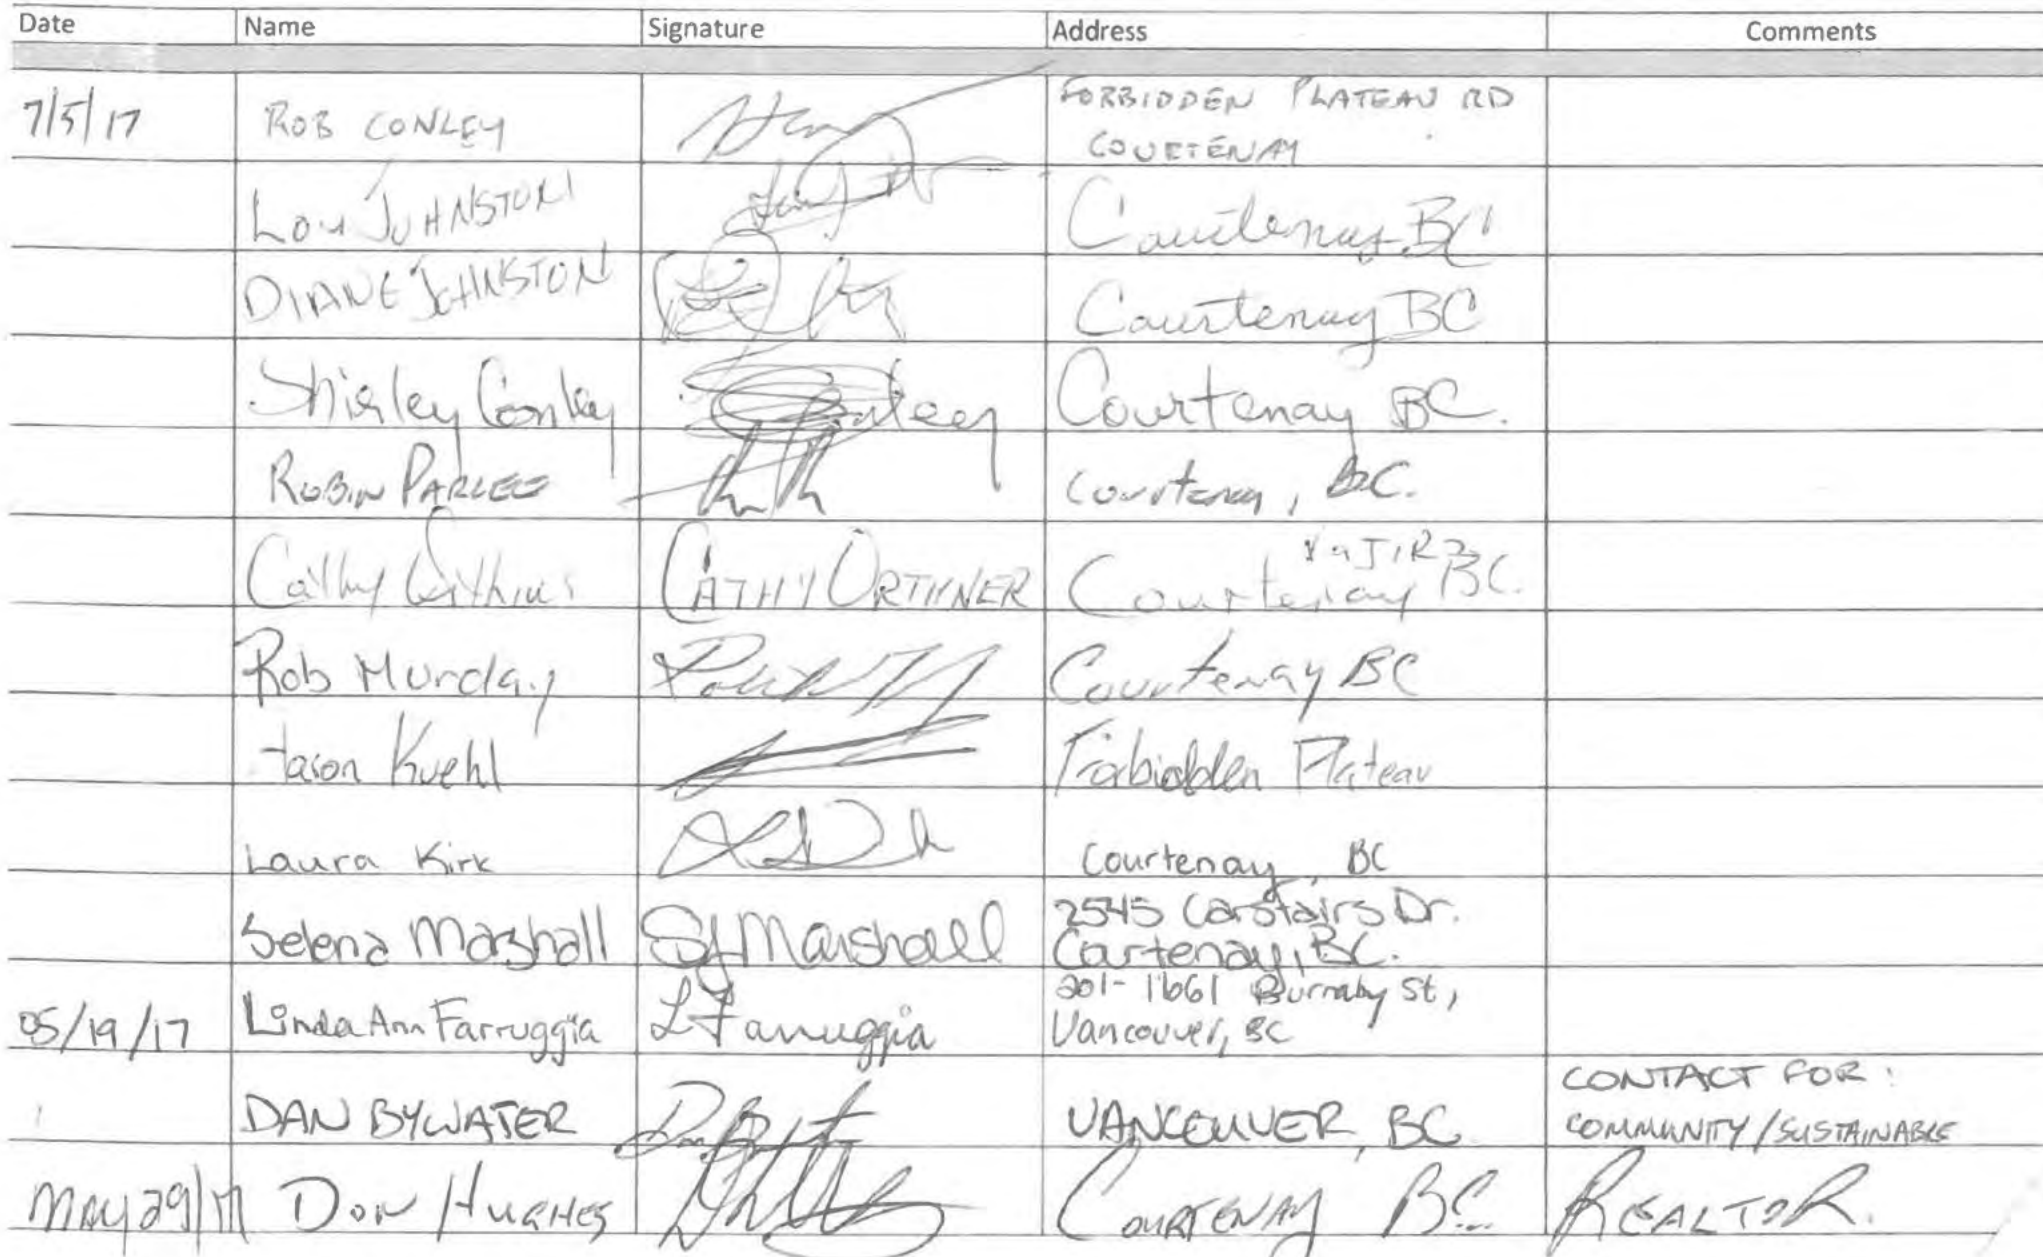 Date Name Signature Address Comments
7/5/17 ROB CONLEY FORBIDDEN PLATEAU RD
COURTENAY
Lou JOHNSTON Courtenay BC
DIANE JOHNSTON Courtenay BC
Shirley Conley Conley Courtenay BC.
ROBIN PARLEE Courtenay, BC.
Cathy CATHY ORTHNER Courtenay BC.
Rob Murday Courtenay BC
Jason Kuehl Forbidden Plateau
Laura Kirk Courtenay, BC
Selena Marshall SJMarshall 2545 Carstairs Dr.
Courtenay, BC.
05/19/17 Linda Ann Farruggia LFarruggia 201-1661 Burnaby St,
Vancouver, BC
CONTACT FOR:
DAN BYWATER VANCOUVER, BC COMMUNITY/SUSTAINABLE
MAY 29/17 DON HUGHES COURTENAY BC REALTOR.